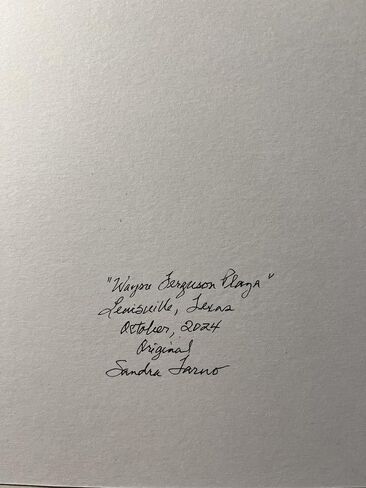 "Wayne Ferguson Plaza"
Lewisville, Texas
October, 2024
Original
Sandra